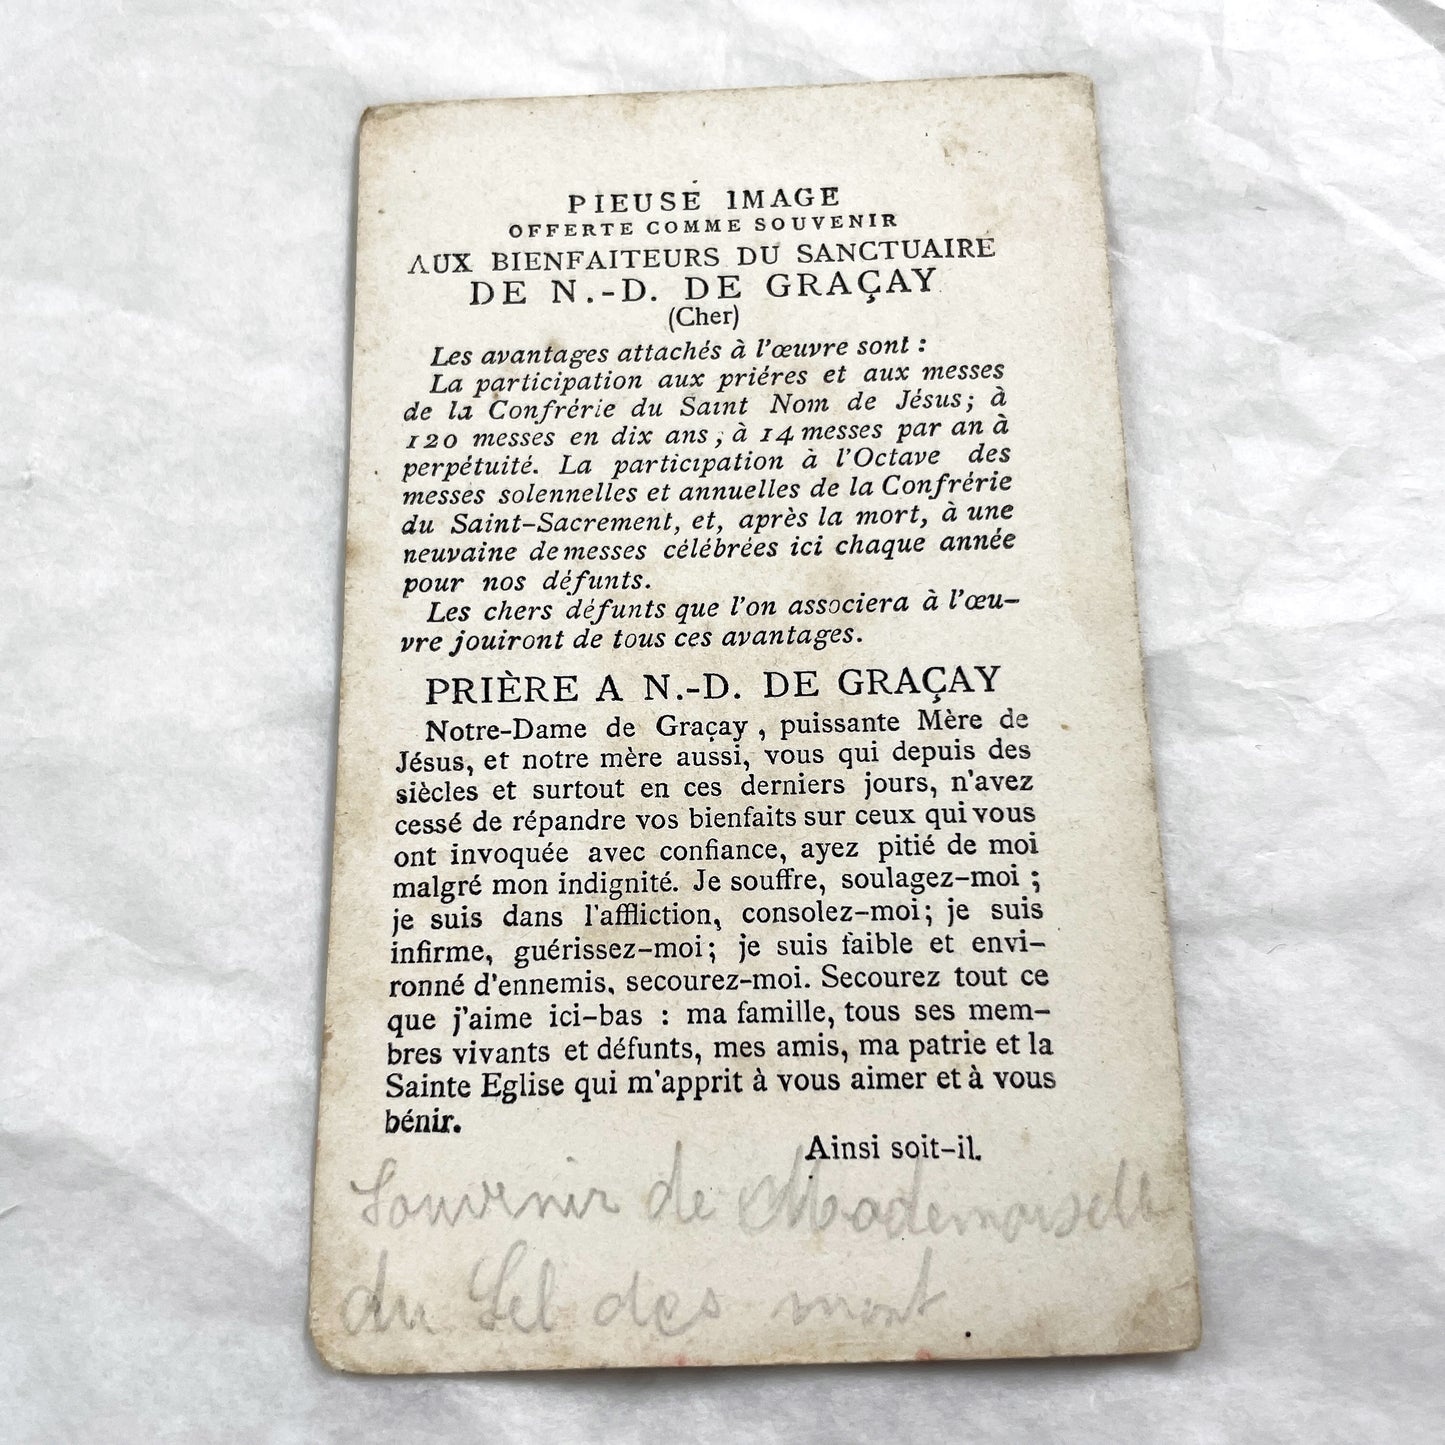 PIEUSE IMAGE
OFFERTE COMME SOUVENIR
AUX BIENFAITEURS DU SANCTUAIRE
DE N.-D. DE GRAÇAY
(Cher)
Les avantages attachés à l'œuvre sont :
La participation aux priéres et aux messes
de la Confrérie du Saint Nom de Jésus; à
120 messes en dix ans, à 14 messes par an à
perpétuité. La participation à l'Octave des
messes solennelles et annuelles de la Confrérie
du Saint-Sacrement, et, après la mort, à une
neuvaine de messes célébrées ici chaque année
pour nos défunts.
Les chers défunts que l'on associera à l'œu-
vre jouiront de tous ces avantages.
PRIÈRE A N.-D. DE GRAÇAY
Notre-Dame de Graçay, puissante Mère de
Jésus, et notre mère aussi, vous qui depuis des
siècles et surtout en ces derniers jours, n'avez
cessé de répandre vos bienfaits sur ceux qui vous
ont invoquée avec confiance, ayez pitié de moi
malgré mon indignité. Je souffre, soulagez-moi ;
je suis dans l'affliction, consolez-moi; je suis
infirme, guérissez-moi; je suis faible et envi-
ronné d'ennemis, secourez-moi. Secourez tout ce
que j'aime ici-bas : ma famille, tous ses mem-
bres vivants et défunts, mes amis, ma patrie et la
Sainte Eglise qui m'apprit à vous aimer et à vous
bénir.
Ainsi soit-il.
Souvenir de Mademoiselle
du Sel des mont